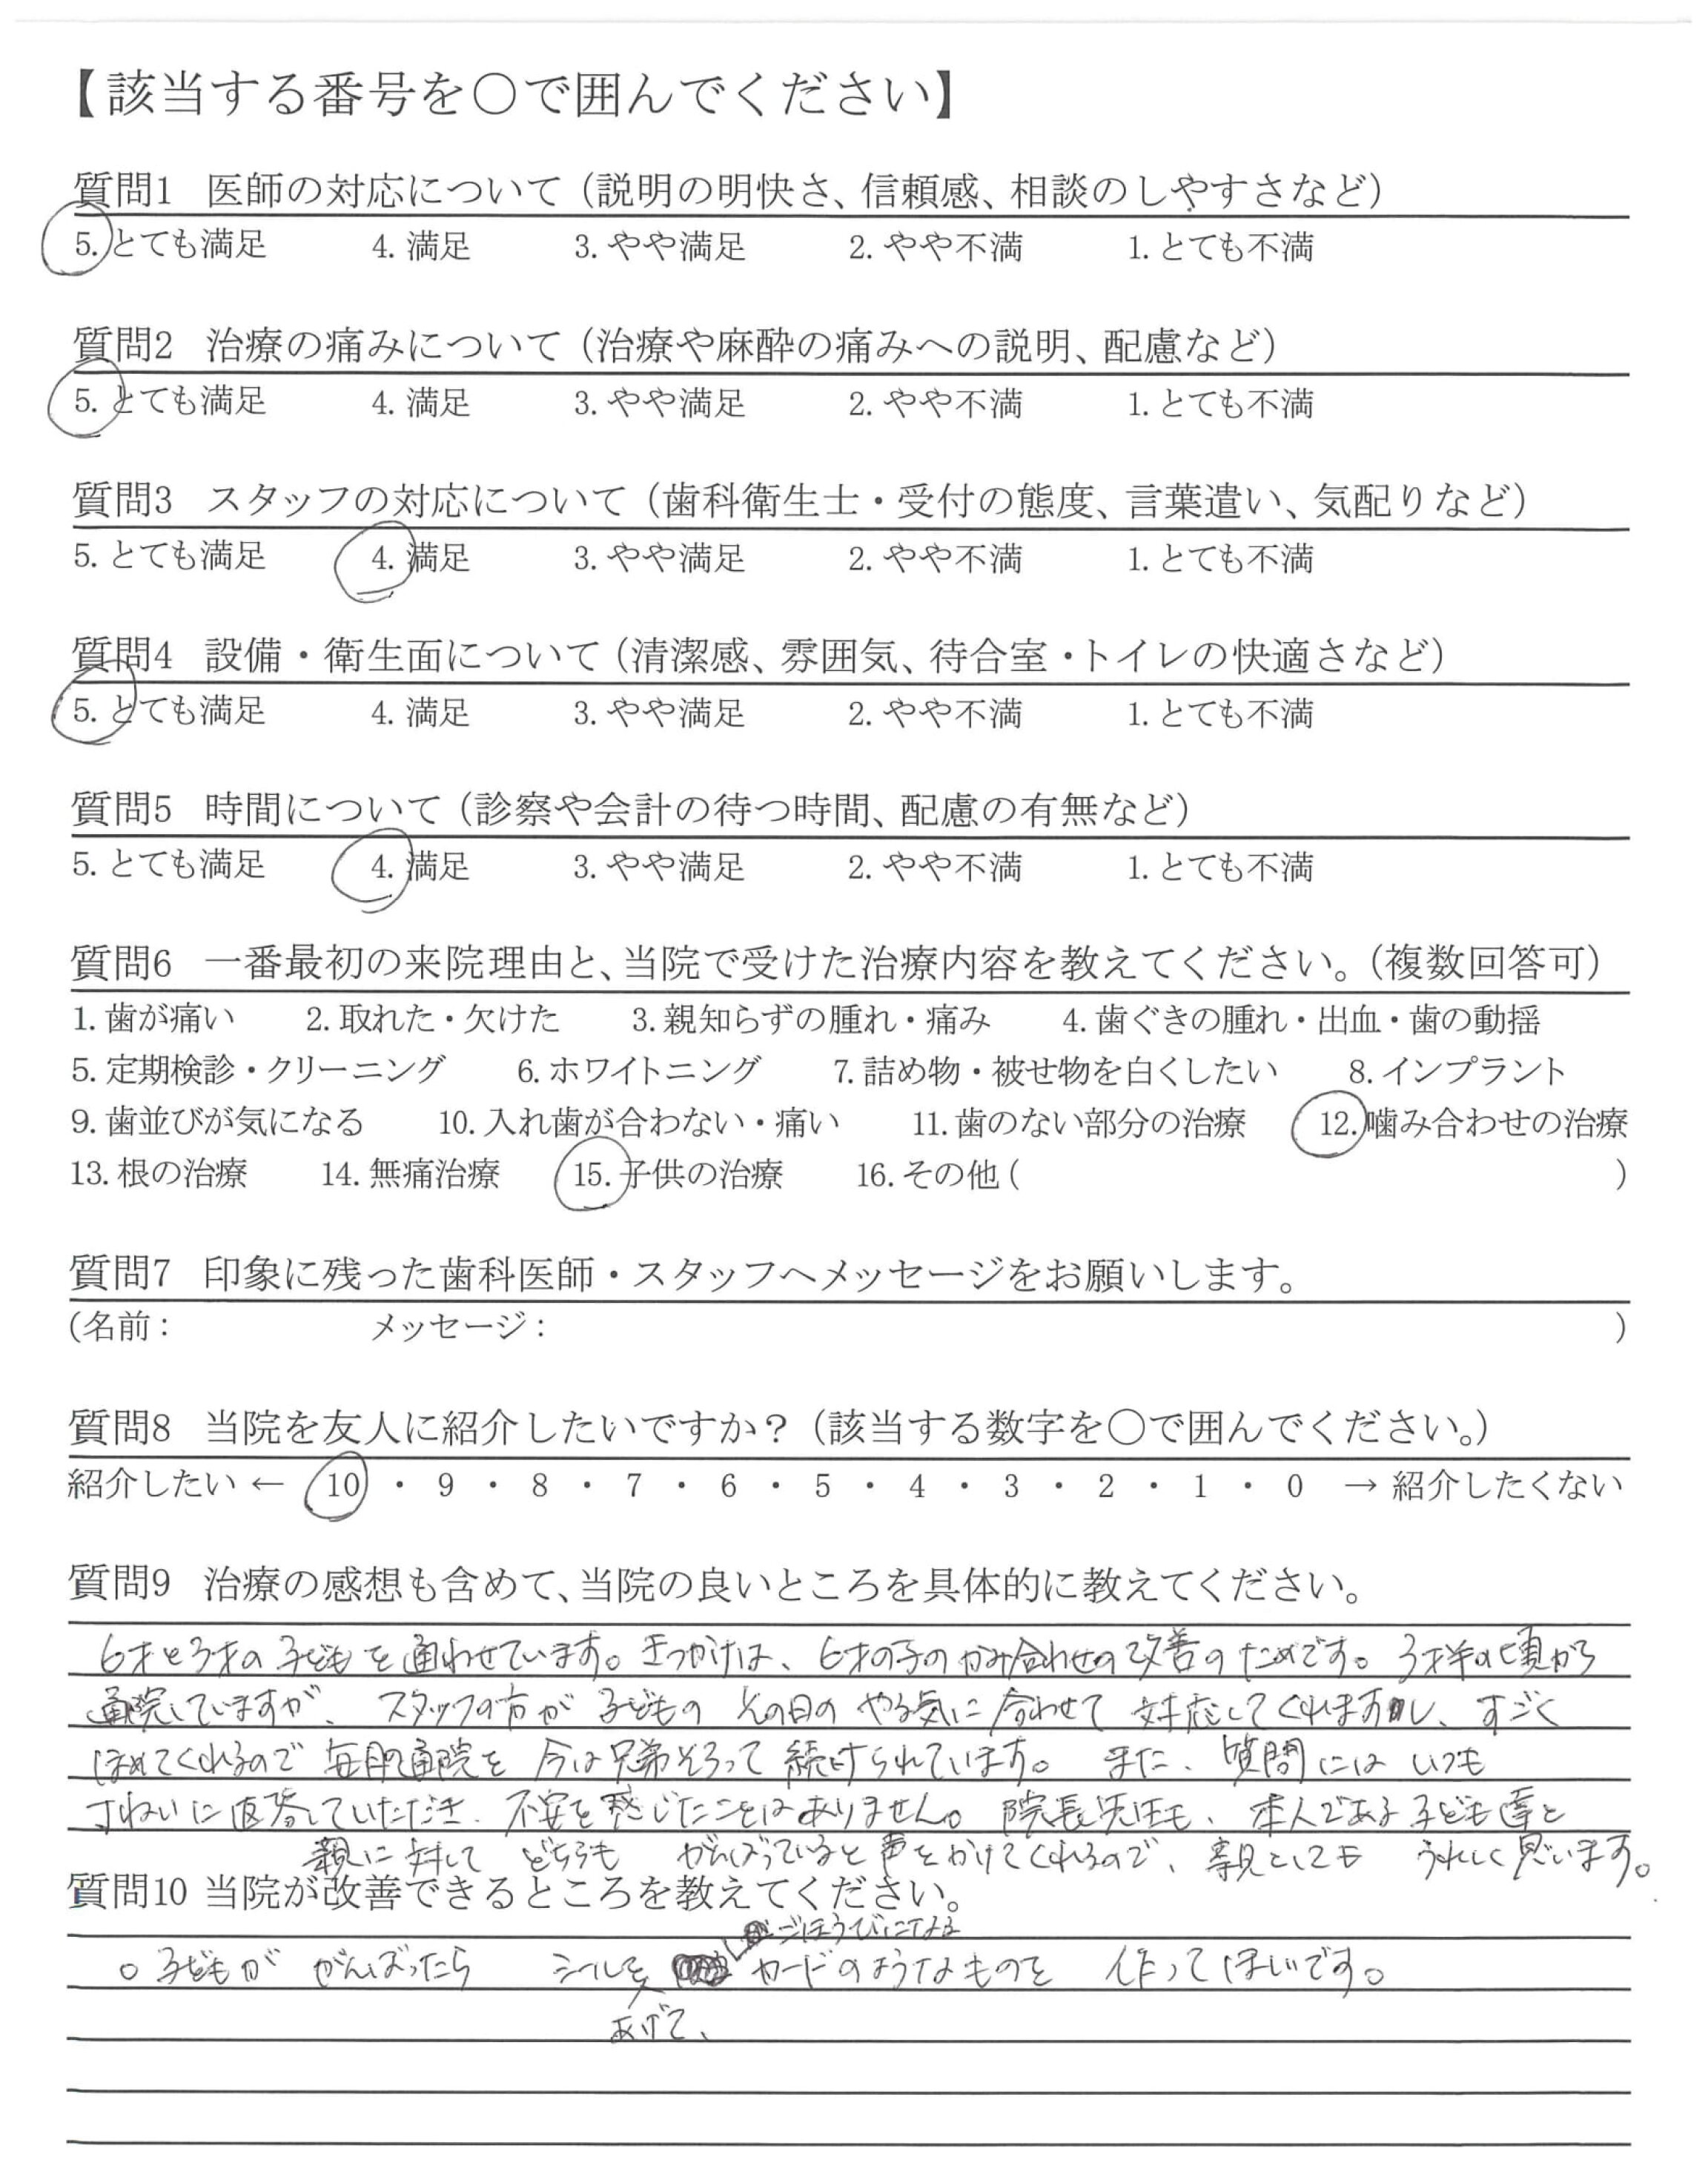 【該当する番号を〇で囲んでください】
質問1 医師の対応について（説明の明快さ、信頼感、相談のしやすさなど）
5. とても満足 4. 満足 3. やや満足 2. やや不満 1. とても不満
質問2 治療の痛みについて（治療や麻酔の痛みへの説明、配慮など）
5. とても満足 4. 満足 3. やや満足 2. やや不満 1. とても不満
質問3 スタッフの対応について（歯科衛生士・受付の態度、言葉遣い、気配りなど）
5. とても満足 4. 満足 3. やや満足 2. やや不満 1. とても不満
質問4 設備・衛生面について（清潔感、雰囲気、待合室・トイレの快適さなど）
5. とても満足 4. 満足 3. やや満足 2. やや不満 1. とても不満
質問5 時間について（診察や会計の待つ時間、配慮の有無など）
5. とても満足 4. 満足 3. やや満足 2. やや不満 1. とても不満
質問6 一番最初の来院理由と、当院で受けた治療内容を教えてください。（複数回答可）
1. 歯が痛い 2. 取れた・欠けた 3. 親知らずの腫れ・痛み 4. 歯ぐきの腫れ・出血・歯の動揺
5. 定期検診・クリーニング 6. ホワイトニング 7. 詰め物・被せ物を白くしたい 8. インプラント
9. 歯並びが気になる 10. 入れ歯が合わない・痛い 11. 歯のない部分の治療 12. 噛み合わせの治療
13. 根の治療 14. 無痛治療 15. 子供の治療 16. その他 ( )
質問7 印象に残った歯科医師・スタッフへメッセージをお願いします。
(名前： メッセージ： )
質問8 当院を友人に紹介したいですか？（該当する数字を〇で囲んでください。）
紹介したい ← 10 ・ 9 ・ 8 ・ 7 ・ 6 ・ 5 ・ 4 ・ 3 ・ 2 ・ 1 ・ 0 → 紹介したくない
質問9 治療の感想も含めて、当院の良いところを具体的に教えてください。
6才と3才の子どもを通わせています。きっかけは、6才の子のかみ合わせの改善のためです。3才半の頃から
通院していますが、スタッフの方が子どものその日のやる気に合わせて対応してくれますし、すごく
ほめてくれるので毎月通院を今は兄弟そろって続けられています。また、質問にはいつも
ていねいに返答していただき、不安を感じたことはありません。院長先生も、本人である子ども達と
親に対してどちらもがんばっていると声をかけてくれるので、親としてもうれしく思います。
質問10 当院が改善できるところを教えてください。
ごほうびになる
○子どもががんばったらシールをカードのようなものを作ってほしいです。
あげて、